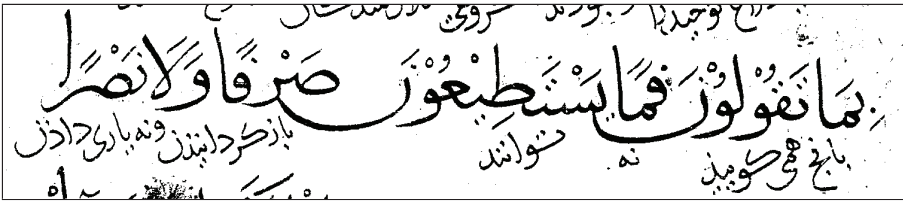 بِمَا تَقُوْلُوْنَ فَمَا يَسْتَطِيْعُوْنَ صَرْفًا وَلَا نَصْرًا
بانچ همی کویید نه توانند بازکردانیدن ونه یاری دادن